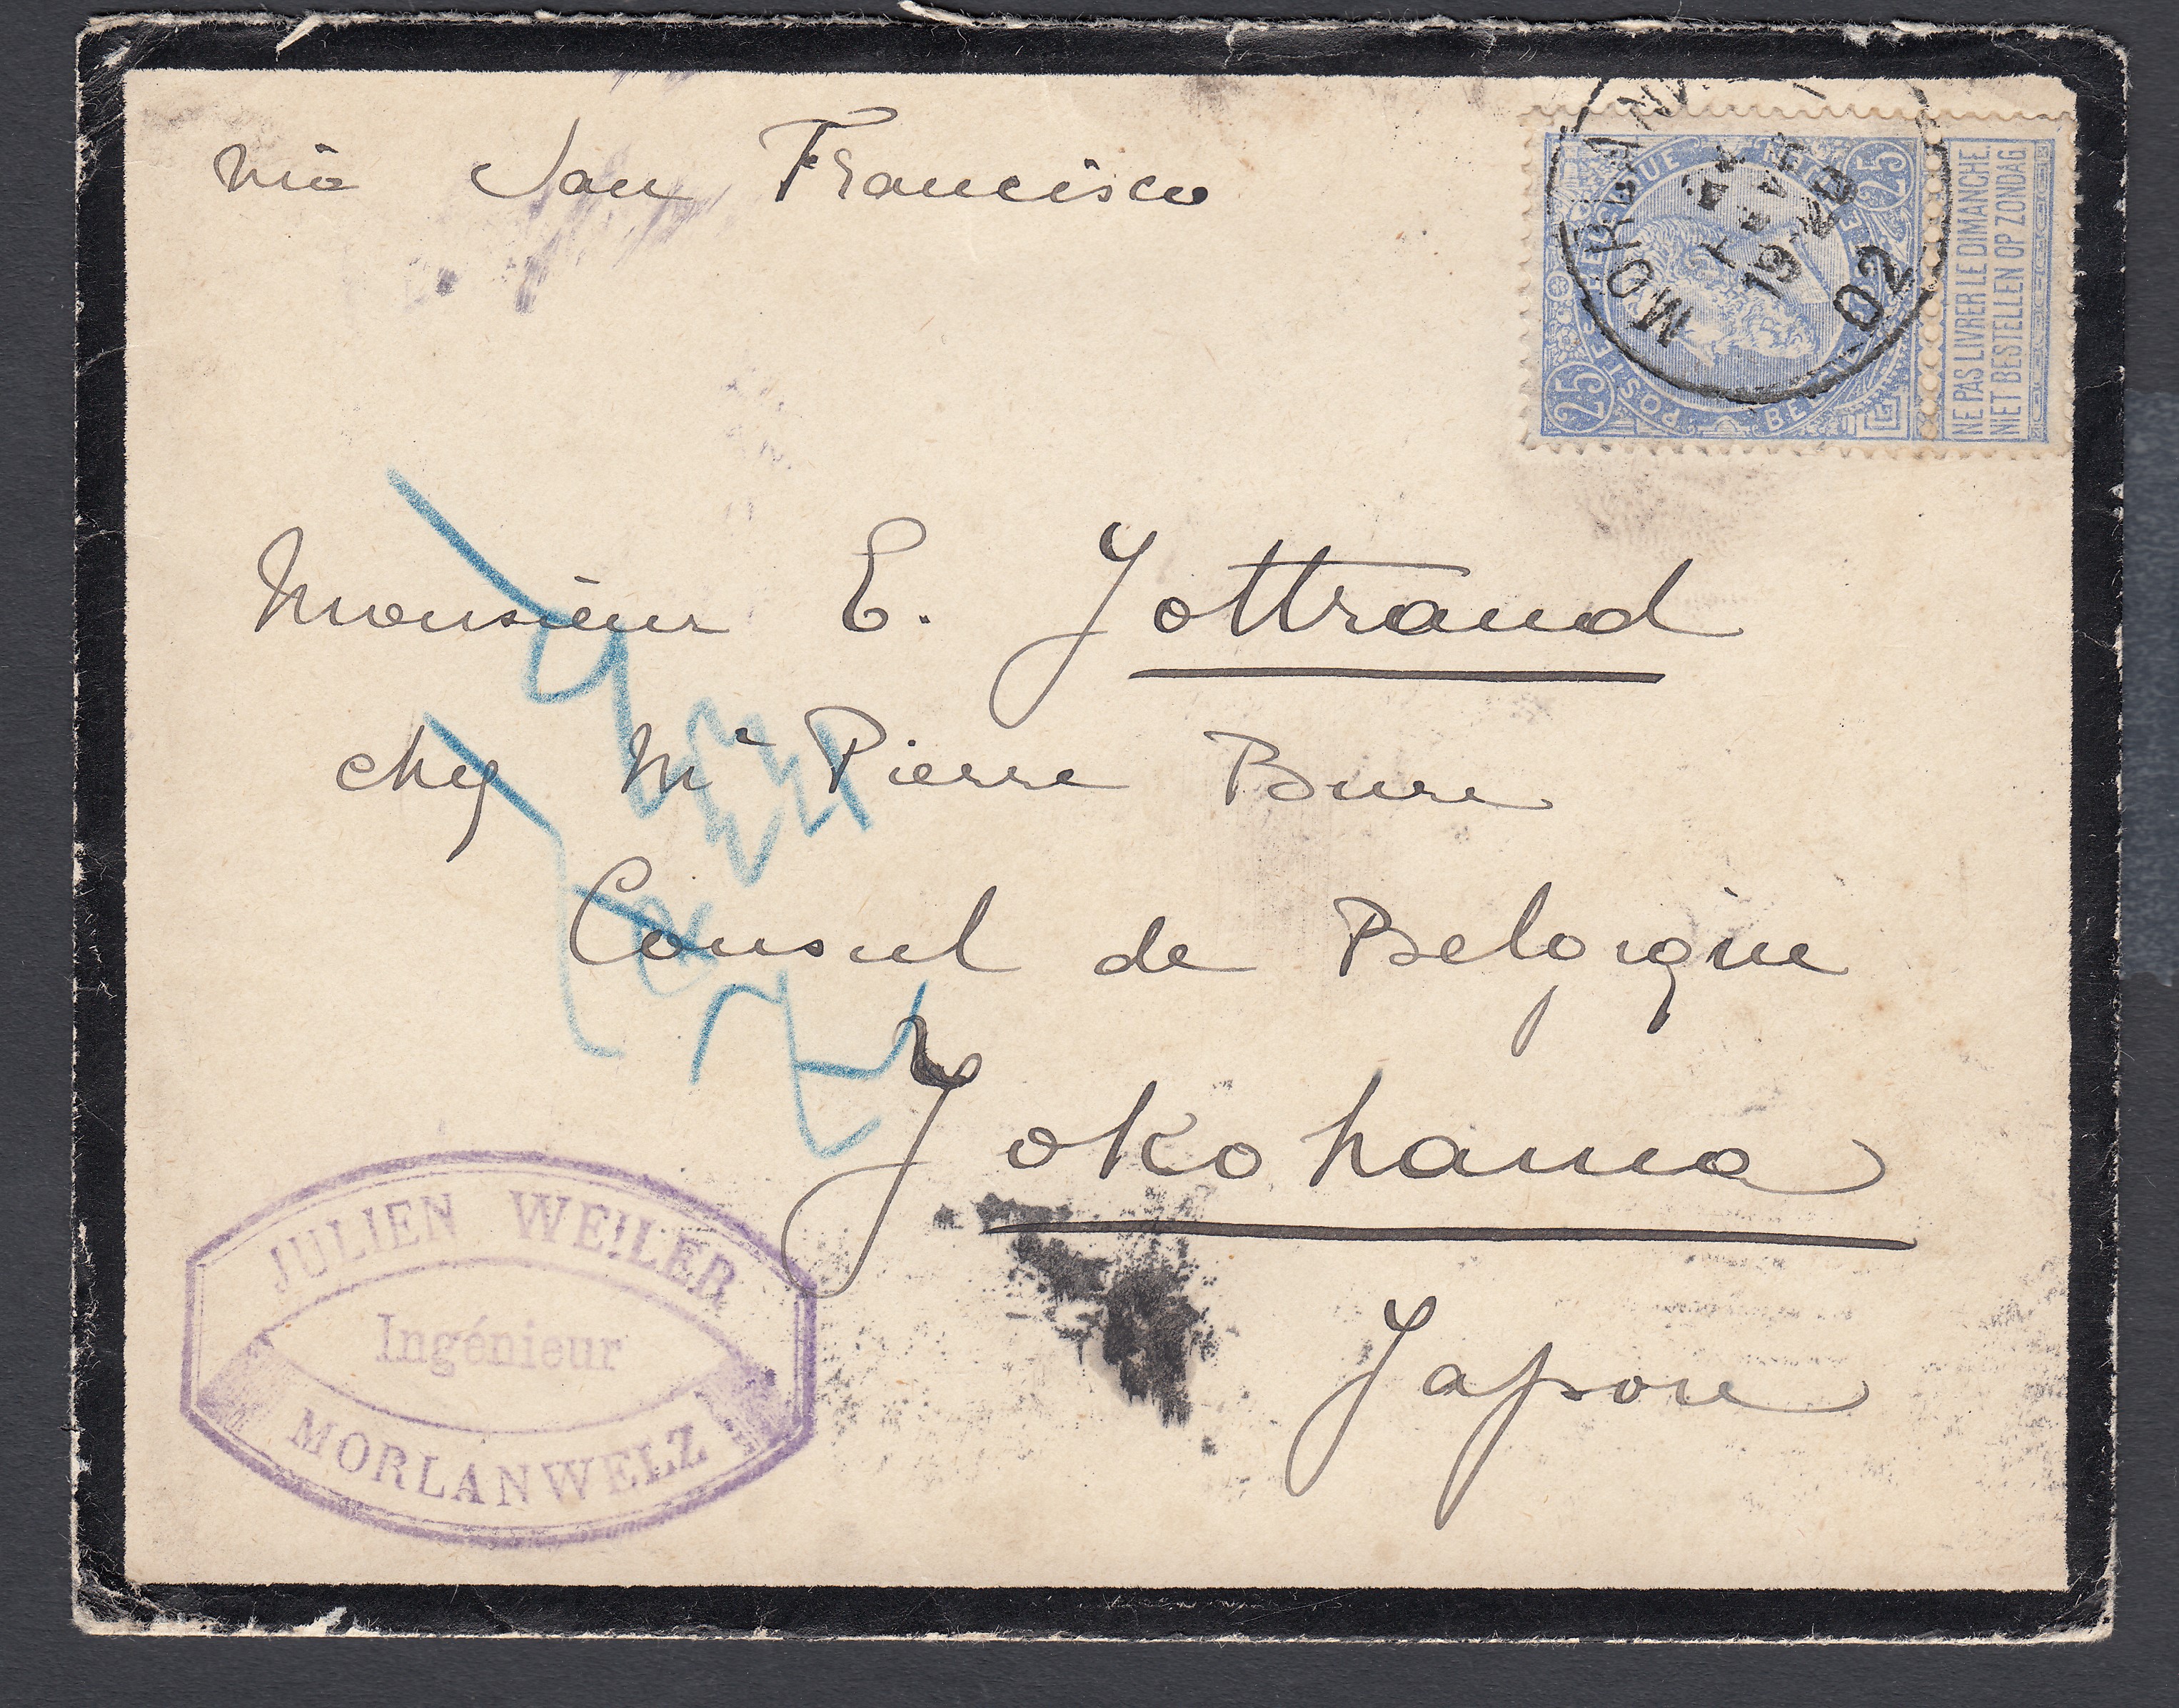 via San Francisco
MORLANW
19-20
02
25
25
NE PAS LIVRER LE DIMANCHE
NIET BESTELLEN OP ZONDAG
Monsieur E. Jottrand
chez Mr Pierre Bure
Consul de Belgique
Yokohama
Japon
JULIEN WEILER
Ingénieur
MORLANWELZ